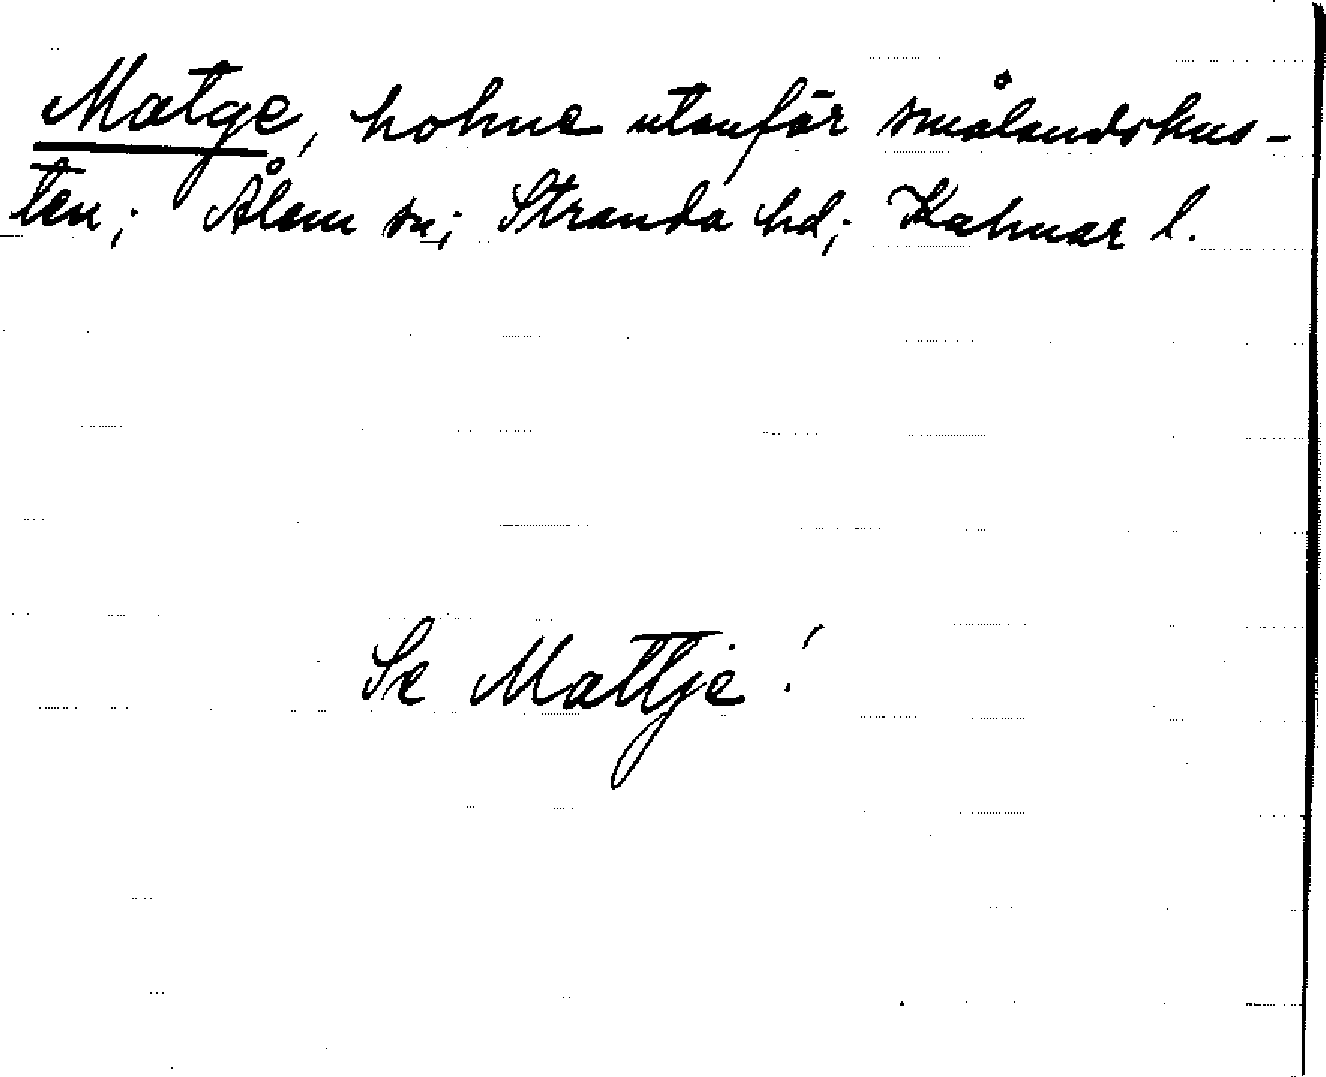 Matge, holme utanför smålandskus-
ten; Ålem sn; Stranda hd; Kalmar l.
Se Mattje!